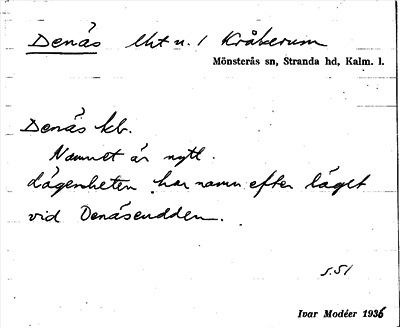 Denäs lht u. 1 Kråkerum
Mönsterås sn, Stranda hd, Kalm. l.
Denäs kb.
Namnet är nytt.
Lägenheten har namn efter läget
vid Denäsudden.
s. 51
Ivar Modéer 1936